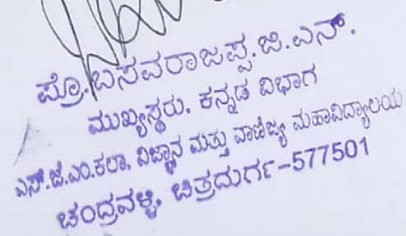 ಪ್ರೊ.ಬಸವರಾಜಪ್ಪ.ಜಿ.ಎನ್.
ಮುಖ್ಯಸ್ಥರು, ಕನ್ನಡ ವಿಭಾಗ
ಎಸ್.ಜೆ.ಎಂ.ಕಲಾ, ವಿಜ್ಞಾನ ಮತ್ತು ವಾಣಿಜ್ಯ ಮಹಾವಿದ್ಯಾಲಯ
ಚಂದ್ರವಳ್ಳಿ, ಚಿತ್ರದುರ್ಗ-577501